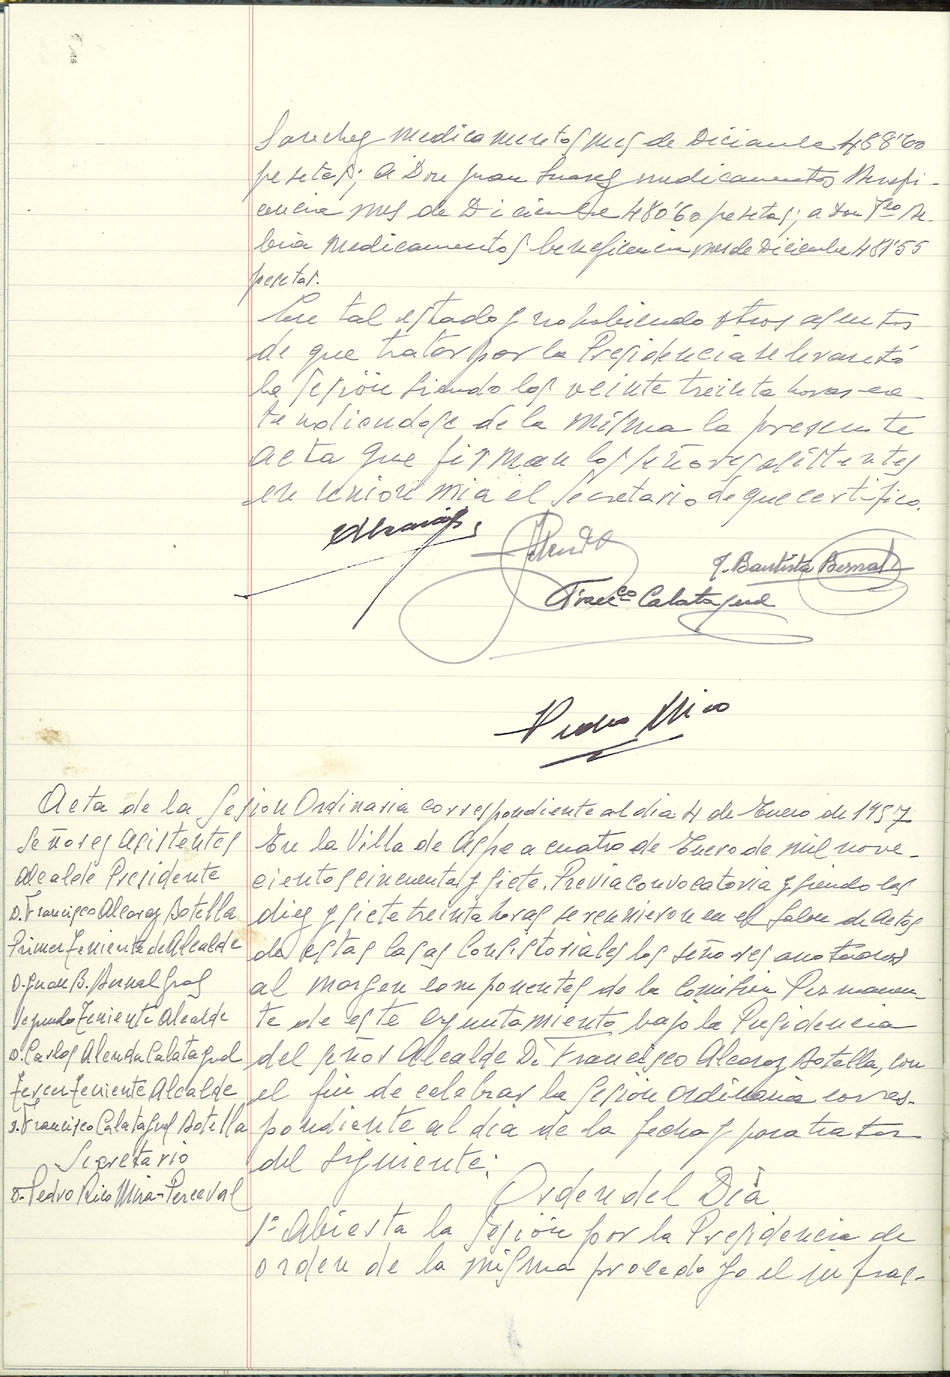 Sanchez medicamentos mes de Diciembre 488'60
pesetas; a Don Juan Suarez medicamentos Benefi-
cencia mes de Diciembre 480'60 pesetas; a Don
medicamentos beneficencia mes de Diciembre 481'55
pesetas.
En tal estado y no habiendo otros asuntos
de que tratar por la Presidencia se levantó
la sesión siendo las veinte treinta horas ex-
tendiendose de la misma la presente
acta que firman los señores asistentes
en union mia el Secretario de que certifico.
J. Bautista Bernal
Franco Calatayud
Pedro Mira
Acta de la Sesion Ordinaria correspondiente al dia 4 de Enero de 1957
Señores asistentes
Alcalde Presidente
D. Francisco Alcaraz Botella
Primer Teniente de Alcalde
D. Juan B. Bernal Gras
Segundo Teniente Alcalde
D. Carlos Alenda Calatayud
Tercer Teniente Alcalde
D. Francisco Calatayud Botella
Secretario
D. Pedro Rico Mira-Perceval
En la Villa de Aspe a cuatro de Enero de mil nove-
cientos cincuenta y siete. Previa convocatoria y siendo las
diez y siete treinta horas se reunieron en el Salon de actos
de estas Casas Consistoriales los señores anotados
al margen componentes de la Comision Permanen-
te de este Ayuntamiento bajo la Presidencia
del señor Alcalde D. Francisco Alcaraz Botella, con
el fin de celebrar la Sesion ordinaria corres-
pondiente al dia de la fecha y para tratar
del siguiente:
Orden del Dia
1º Abierta la sesión por la Presidencia de
orden de la misma procedo yo el infras-